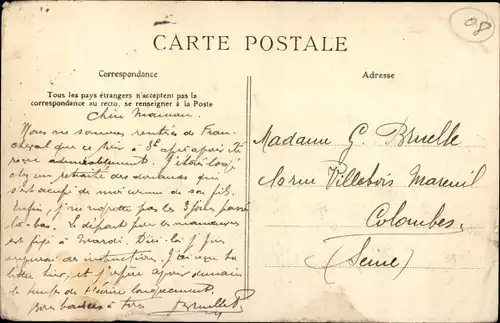 08
CARTE POSTALE
Correspondance
Adresse
Tous les pays étrangers n'acceptent pas la
correspondance au recto, se renseigner à la Poste
Chère Maman.
Nous ne sommes rentrés de Fran-
cheval que ce soir à après avoir été
reçus admirablement. J'étais logé
chez un retraité des douanes qui
s'est occupé de moi comme de son fils.
Enfin, j'me regrette pas les 3 jours passés
là-bas. Le départ pour les manœuvres
est fixé à Mardi. D'ici-là j'
des instructions. J'ai reçu ta
lettre hier, et j'espère avoir demain
le temps de t'écrire longuement.
Bons baisers à tous Bruelle
Madame G. Bruelle
rue Villebois Mareuil
Colombes,
(Seine)